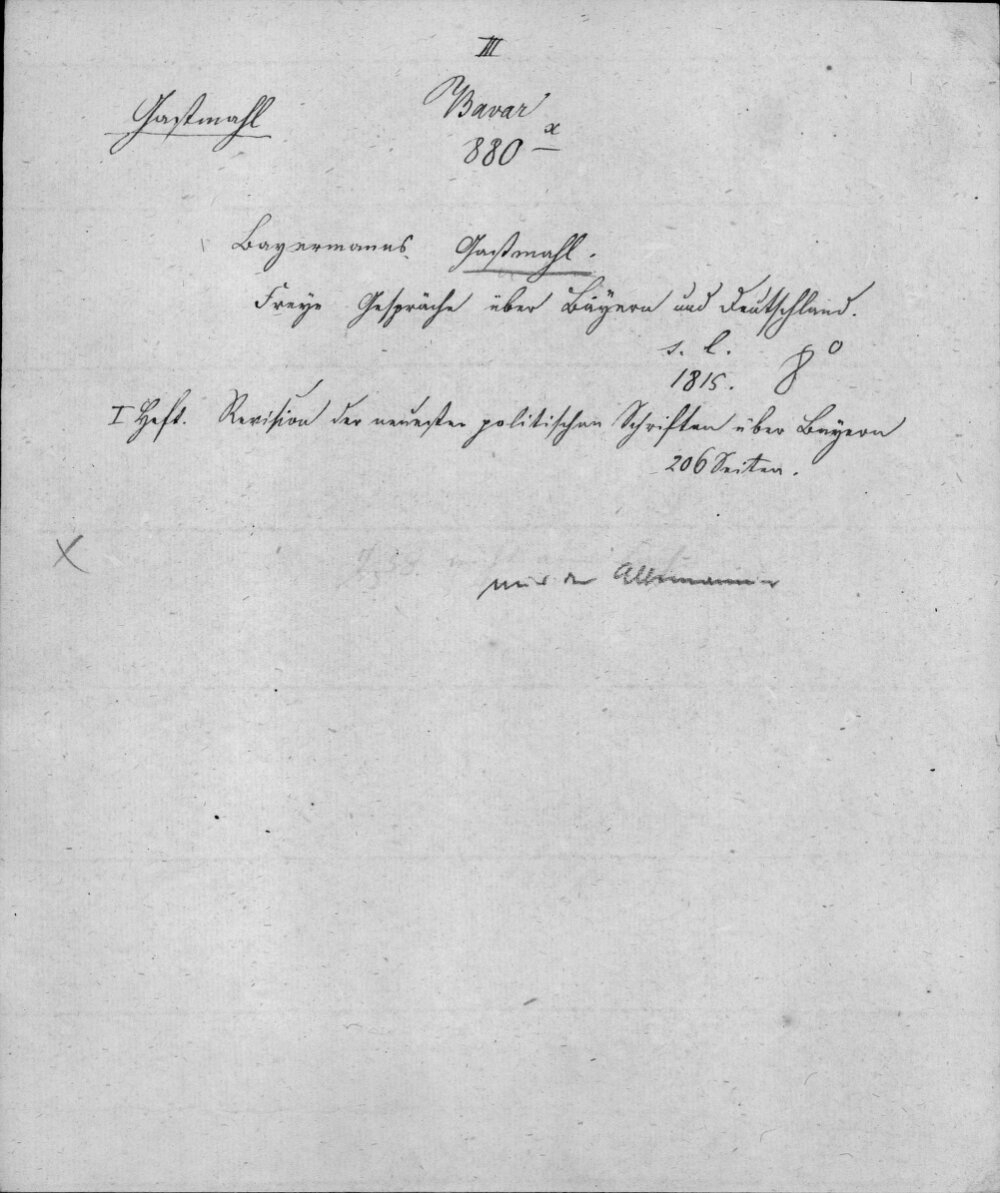 III
Gastmahl
Bavar
880 x
Bayermanns Gastmahl.
Freye Gespräche über Bayern und Deutschland.
s. l.
1815. 8°
I Heft. Revision der neuesten politischen Schriften über Bayern
206 Seiten.
X